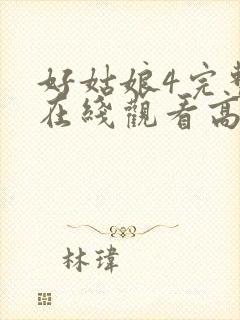 好姑娘4完整
在綫觀看高
林瑋